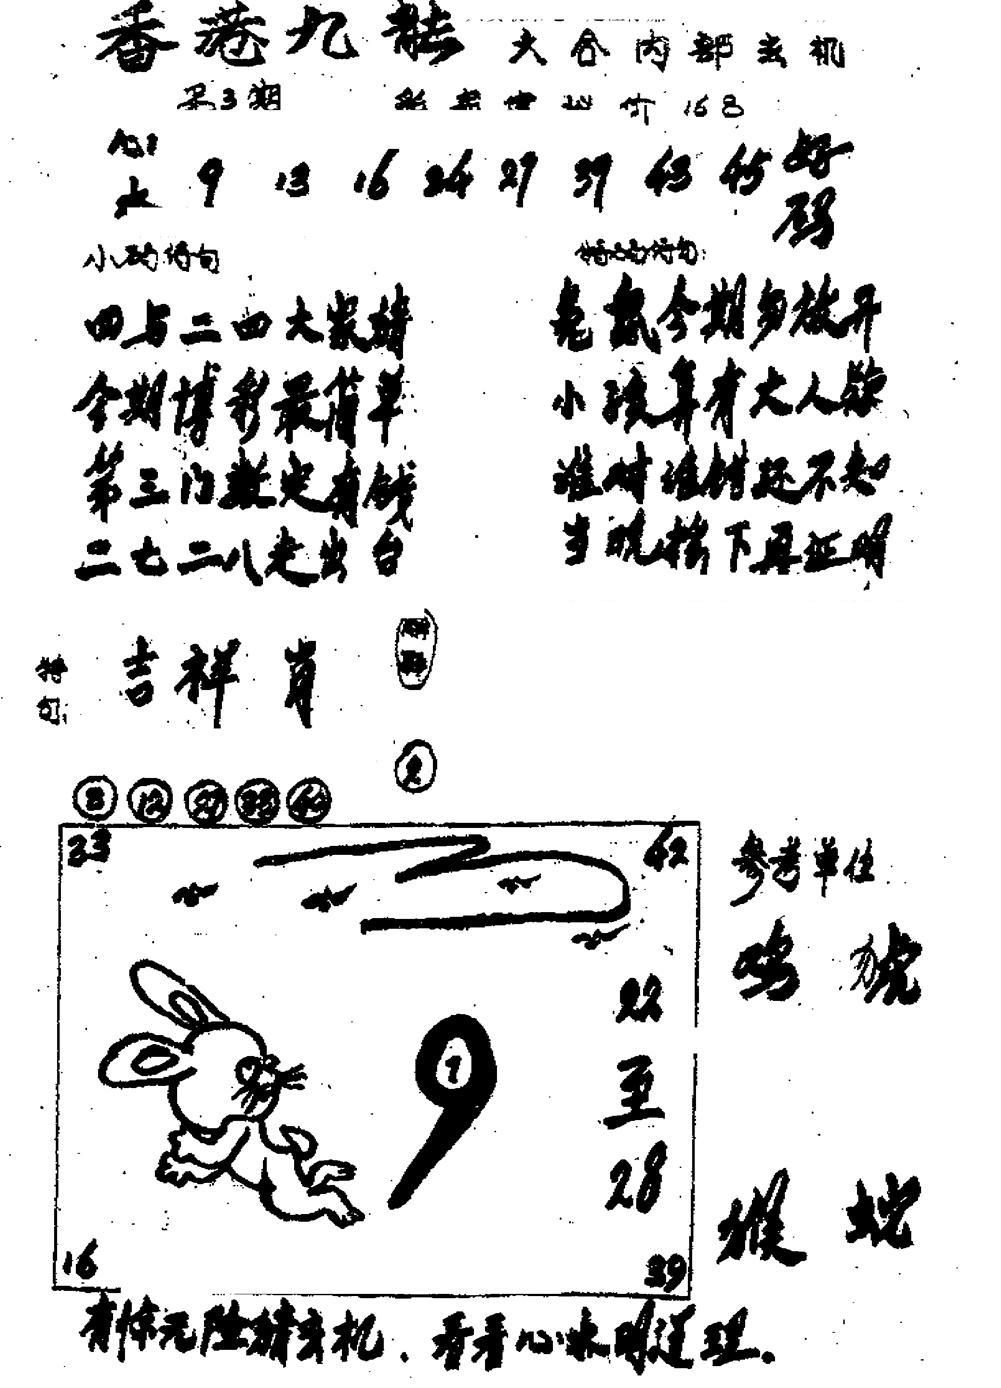 香港九龍 六合内部玄机
第3期 168
9 13 16 24 27 39 43 45 好
水 码
小码特句
四与二四大家猜
今期博彩最简单
第三门数定有钱
二七二八走出台
特码特句:
兔鼠今期勿放开
小孩算有大人缘
谁对谁错还不知
当晚搞下再证明
特句: 吉祥肖
2
8 12 27 38 40
23 42
22
至
28
9
1
16 39
参考单位
鸡 虎
猴 蛇
有惊无险猜玄机.看看心味明道理。